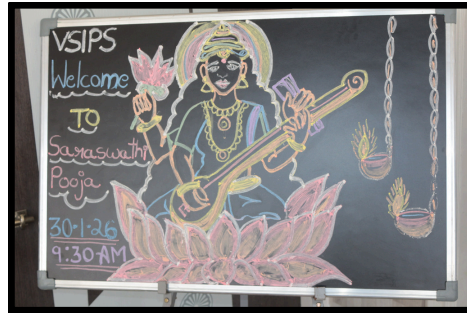 VSIPS
Welcome
TO
Saraswathi
Pooja
30-1-26
9:30 AM